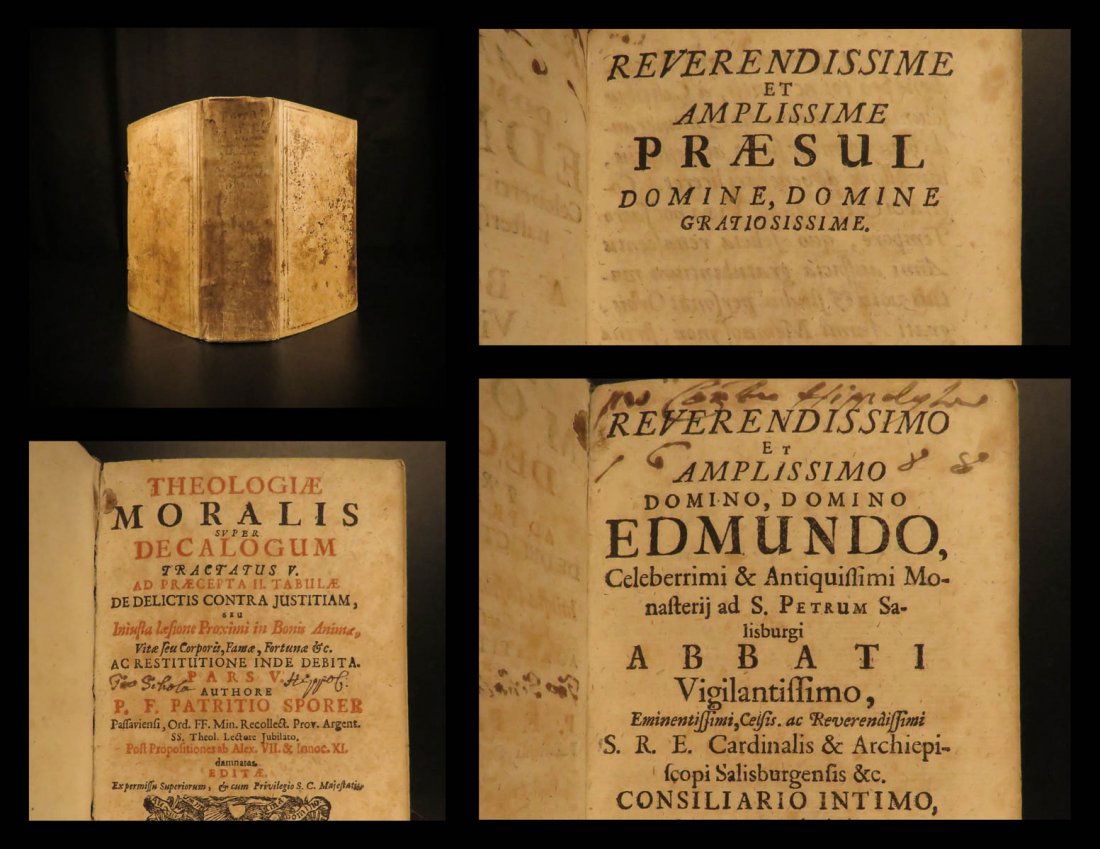 REVERENDISSIME
ET
AMPLISSIME
PRÆSUL
DOMINE, DOMINE
GRATIOSISSIME.
THEOLOGIÆ
MORALIS
SVPER
DECALOGUM
TRACTATUS V.
AD PRÆCEPTA II. TABULÆ
DE DELICTIS CONTRA JUSTITIAM,
SEU
Iniusta læsione Proximi in Bonis Animæ,
Vitæ seu Corporis, Famæ, Fortunæ &c.
AC RESTITUTIONE INDE DEBITA.
PARS V.
AUTHORE
P. F. PATRITIO SPORER
Passaviensi, Ord. FF. Min. Recollect. Prov. Argent.
SS. Theol. Lectore Jubilato,
Post Propositiones ab Alex. VII. & Innoc. XI.
damnatas
EDITÆ.
Ex permissu Superiorum, & cum Privilegio S. C. Majestatis
REVERENDISSIMO
ET
AMPLISSIMO
DOMINO, DOMINO
EDMUNDO,
Celeberrimi & Antiquiſſimi Mo-
naſterij ad S. PETRUM Sa-
lisburgi
ABBATI
Vigilantiſſimo,
Eminentiſſimi, Celſis. ac Reverendiſſimi
S. R. E. Cardinalis & Archiepi-
ſcopi Salisburgenſis &c.
CONSILIARIO INTIMO,